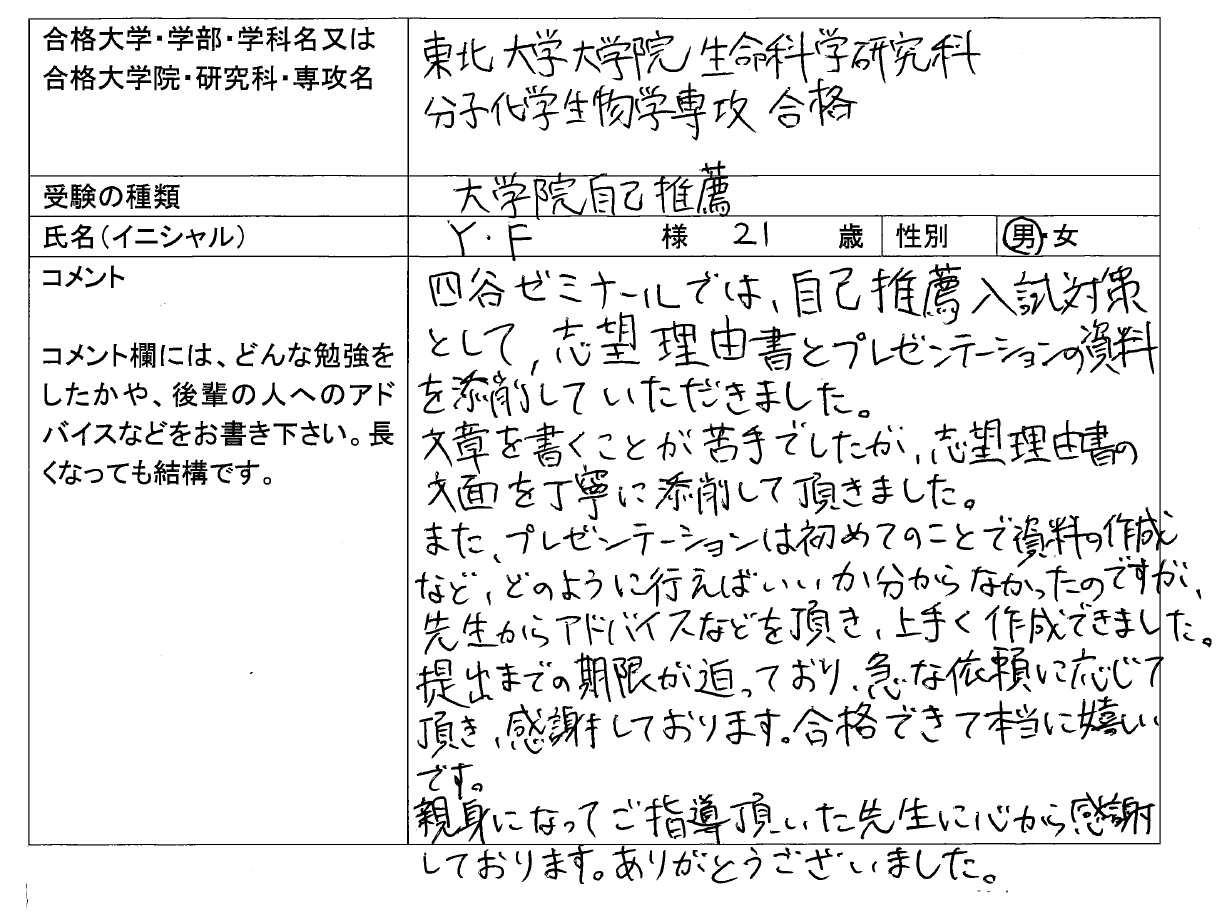 合格大学・学部・学科名又は
合格大学院・研究科・専攻名
東北大学大学院 生命科学研究科
分子化学生物学専攻 合格
受験の種類
大学院自己推薦
氏名(イニシャル)
Y・F 様 21 歳 性別 男・女
コメント
コメント欄には、どんな勉強を
したかや、後輩の人へのアド
バイスなどをお書き下さい。長
くなっても結構です。
四谷ゼミナールでは、自己推薦入試対策
として、志望理由書とプレゼンテーションの資料
を添削していただきました。
文章を書くことが苦手でしたが、志望理由書の
文面を丁寧に添削して頂きました。
また、プレゼンテーションは初めてのことで資料の作成
など、どのように行えばいいか分からなかったのですが、
先生からアドバイスなどを頂き、上手く作成できました。
提出までの期限が迫っており、急な依頼に応じて
頂き、感謝しております。合格できて本当に嬉しい
です。
親身になってご指導頂いた先生に心から感謝
しております。ありがとうございました。